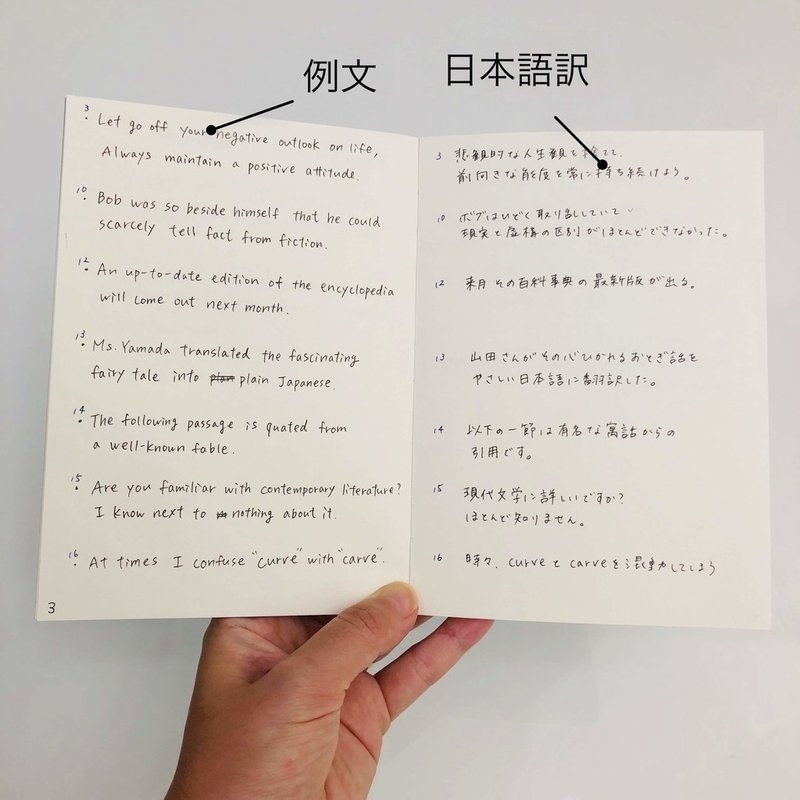 例文
日本語訳
3
Let go off your negative outlook on life,
Always maintain a positive attitude.
10
Bob was so beside himself that he could
scarcely tell fact from fiction.
12
An up-to-date edition of the encyclopedia
will come out next month.
13
Ms. Yamada translated the fascinating
fairy tale into plain Japanese.
14
The following passage is quated from
a well-known fable.
15
Are you familiar with contemporary literature?
I know next to nothing about it.
16
At times I confuse "curve" with "carve".
3
3 悲観的な人生観を捨てて、
前向きな態度を常に持ち続けよう。
10 ボブはひどく取り乱していて
現実と虚構の区別がほとんどできなかった。
12 来月その百科事典の最新版が出る。
13 山田さんがその心ひかれるおとぎ話を
やさしい日本語に翻訳した。
14 以下の一節は有名な寓話からの
引用です。
15 現代文学に詳しいですか?
ほとんど知りません。
16 時々、curveとcarveを混動してしまう